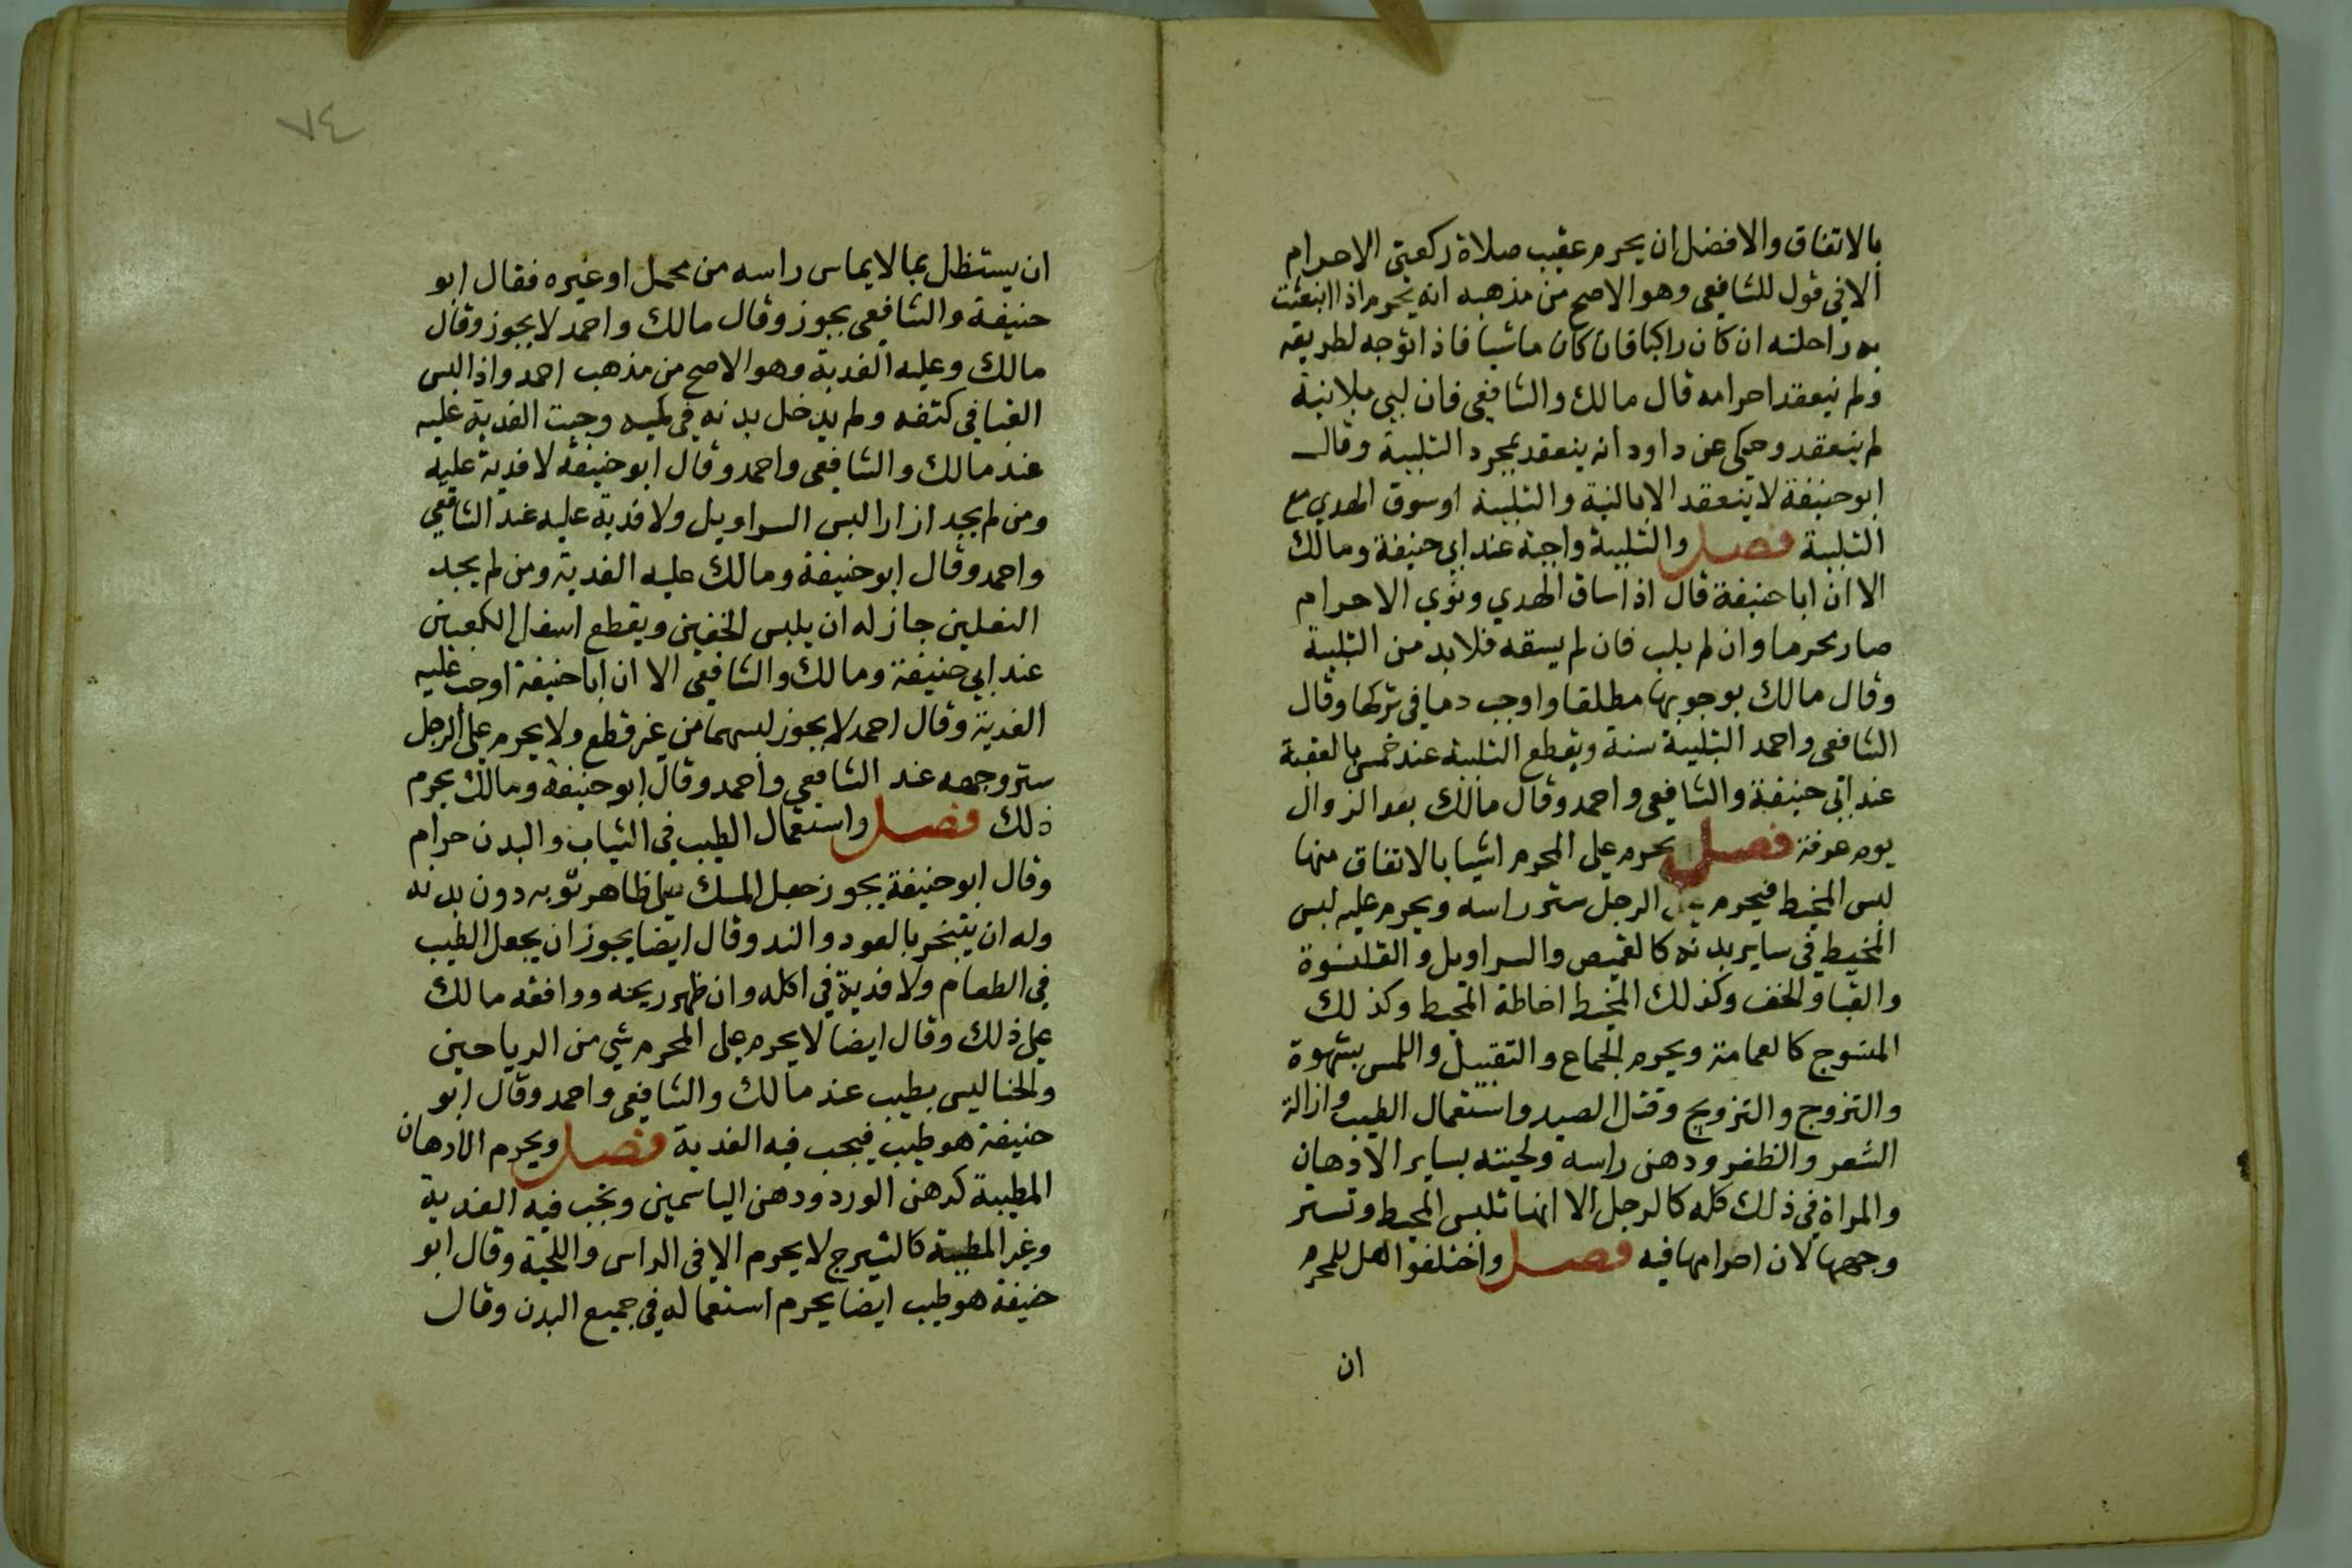 بالاتفاق والافضل ان يحرم عقيب صلاة ركعتي الاحرام
الا في قول للشافعي وهو الاصح من مذهبه انه يحرم اذا انبعثت
به راحلته ان كان راكبا فان كان ماشيا فاذا توجه لطريقه
ولم ينعقد احرامه قال مالك والشافعي فان لبي بلا نية
لم ينعقد وحكى عن داود انه ينعقد بمجرد التلبية وقال
ابو حنيفة لا ينعقد الا بالنية والتلبية او سوق الهدي مع
التلبية فصل والتلبية واجبة عند ابي حنيفة ومالك
الا ان ابا حنيفة قال اذا ساق الهدي ونوي الاحرام
صار محرما وان لم يلب فان لم يسقه فلا بد من التلبية
وقال مالك بوجوبها مطلقا واوجب دما في تركها وقال
الشافعي واحمد التلبية سنة ويقطع التلبية عند العقبة
عند ابي حنيفة والشافعي واحمد وقال مالك بعد الزوال
يوم عرفة فصل يحرم على المحرم اشيا بالاتفاق منها
لبس المخيط فيحرم على الرجل ستر راسه ويحرم عليه لبس
المخيط في ساير بدنه كالقميص والسراويل والقلنسوة
والقبا والخف وكذلك المخيط اخاطة المحيط وكذلك
المنسوج كالعمامة ويحرم الجماع والتقبيل واللمس بشهوة
والتزوج والتزويج وقتل الصيد واستعمال الطيب وازالة
الشعر والظفر ودهن راسه ولحيته بساير الادهان
والمراة في ذلك كله كالرجل الا انها تلبس المخيط وتستر
وجهها لان احرامها فيه فصل واختلفوا هل للمحرم
ان
٧٤
ان يستظل بما لا يماس راسه من محمل او غيره فقال ابو
حنيفة والشافعي يجوز وقال مالك واحمد لا يجوز وقال
مالك وعليه الفدية وهو الاصح من مذهب احمد واذا لبس
القبا في كتفه ولم يدخل يديه في كميه وجبت الفدية عليه
عند مالك والشافعي واحمد وقال ابو حنيفة لا فدية عليه
ومن لم يجد ازارا لبس السراويل ولا فدية عليه عند الشافعي
واحمد وقال ابو حنيفة ومالك عليه الفدية ومن لم يجد
النعلين جاز له ان يلبس الخفين ويقطع اسفل الكعبين
عند ابي حنيفة ومالك والشافعي الا ان ابا حنيفة اوجب عليه
الفدية وقال احمد لا يجوز لبسهما من غير قطع ولا يحرم على الرجل
ستر وجهه عند الشافعي واحمد وقال ابو حنيفة ومالك يحرم
ذلك فصل واستعمال الطيب في الثياب والبدن حرام
وقال ابو حنيفة يجوز جعل المسك على ظاهر ثوبه دون بدنه
وله ان يتبخر بالعود والند وقال ايضا يجوز ان يجعل الطيب
في الطعام ولا فدية في اكله وان ظهر ريحه ووافقه مالك
على ذلك وقال ايضا لا يحرم على المحرم شي من الرياحين
والحنا ليس بطيب عند مالك والشافعي واحمد وقال ابو
حنيفة هو طيب فيجب فيه الفدية فصل ويحرم الادهان
المطيبة كدهن الورد ودهن الياسمين وتجب فيه الفدية
وغير المطيبة كالشيرج لا يحرم الا في الراس واللحية وقال ابو
حنيفة هو طيب ايضا يحرم استعماله في جميع البدن وقال